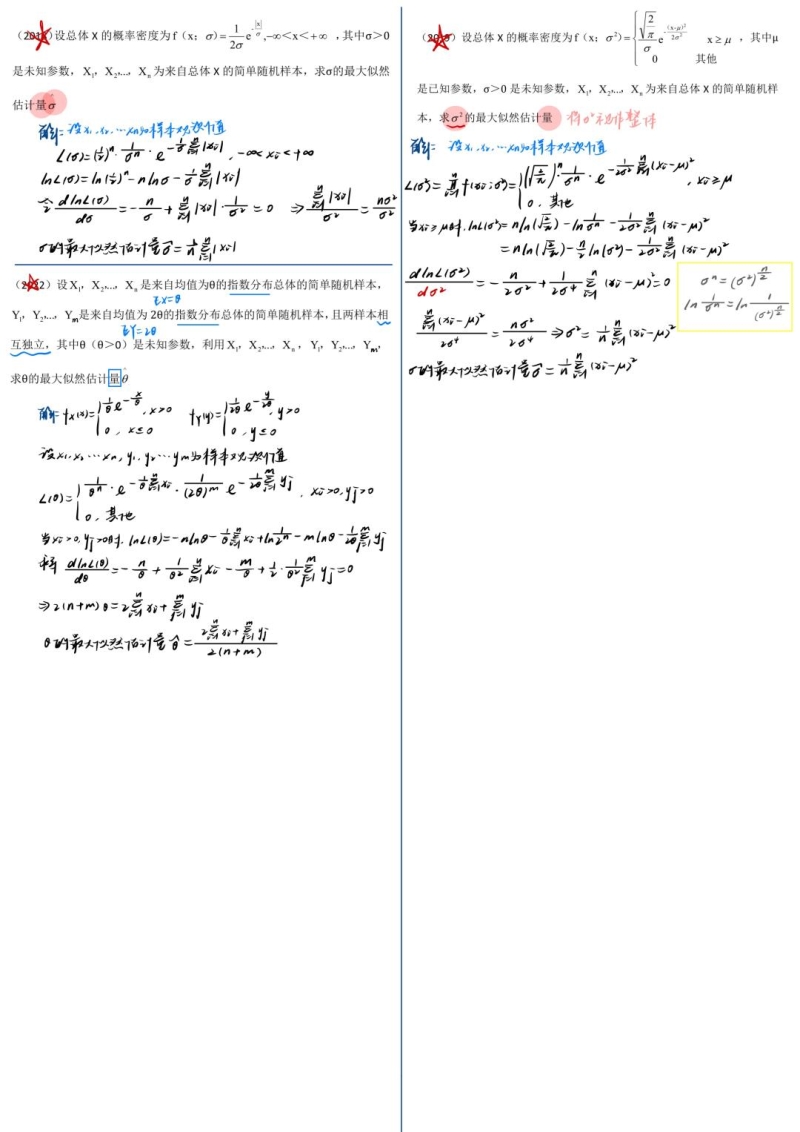 设总体 X 的概率密度为 f（x；σ）= 1/2σ e^(-|x|/σ) ,-∞＜x＜+∞ ，其中σ＞0
是未知参数， X₁，X₂,..., Xₙ 为来自总体 X 的简单随机样本，求σ的最大似然
估计量 σ̂
解: 设x₁,x₂,…xₙ为样本观测值
L(σ)=(1/2)ⁿ·1/σⁿ·e^(-1/σ Σᵢ₌₁ⁿ|xᵢ|) , -∞<xᵢ<+∞
lnL(σ)=ln(1/2)ⁿ-nlnσ-1/σ Σᵢ₌₁ⁿ|xᵢ|
令 dlnL(σ)/dσ =-n/σ+Σᵢ₌₁ⁿ|xᵢ|·1/σ²=0 ⇒ Σᵢ₌₁ⁿ|xᵢ|/σ² = nσ/σ²
σ的最大似然估计量σ̂=1/n Σᵢ₌₁ⁿ|xᵢ|
（2022）设 X₁，X₂,..., Xₙ 是来自均值为θ的指数分布总体的简单随机样本，
EX=θ
Y₁，Y₂,..., Yₘ是来自均值为 2θ的指数分布总体的简单随机样本，且两样本相
EY=2θ
互独立，其中θ（θ＞0）是未知参数，利用 X₁，X₂,..., Xₙ ，Y₁，Y₂,..., Yₘ，
求θ的最大似然估计量 θ̂
解: fX(x)={1/θ e^(-x/θ) , x>0 fY(y)={1/2θ e^(-y/2θ) , y>0
0 , x≤0 0 , y≤0
设x₁,x₂…xₙ, y₁,y₂…yₘ为样本观测值
L(θ)={1/θⁿ·e^(-1/θ Σᵢ₌₁ⁿxᵢ)·1/(2θ)ᵐ e^(-1/2θ Σⱼ₌₁ᵐyⱼ) , xᵢ>0,yⱼ>0
0, 其他
当xᵢ>0,yⱼ>0时, lnL(θ)=-nlnθ-1/θ Σᵢ₌₁ⁿxᵢ+ln1/2ⁿ-mlnθ-1/2θ Σⱼ₌₁ᵐyⱼ
dlnL(θ)/dθ =-n/θ+1/θ² Σᵢ₌₁ⁿxᵢ-m/θ+1/2·1/θ² Σⱼ₌₁ᵐyⱼ=0
⇒2(n+m)θ=2Σᵢ₌₁ⁿxᵢ+Σⱼ₌₁ᵐyⱼ
θ的最大似然估计量θ̂= (2Σᵢ₌₁ⁿxᵢ+Σⱼ₌₁ᵐyⱼ)/2(n+m)
设总体 X 的概率密度为 f（x；σ²）={√(2/π)/σ e^(-(x-μ)²/2σ²) x≥μ ，其中μ
0 其他
是已知参数，σ＞0 是未知参数， X₁，X₂,..., Xₙ 为来自总体 X 的简单随机样
本，求σ²的最大似然估计量 将σ²视作整体
解: 设x₁,x₂,…xₙ为样本观测值
L(σ²)=Πᵢ₌₁ⁿf(xᵢ;σ²)={(√(2/π))ⁿ·1/σⁿ·e^(-1/2σ² Σᵢ₌₁ⁿ(xᵢ-μ)²) , xᵢ≥μ
0, 其他
当xᵢ≥μ时, lnL(σ²)=nln(√(2/π))-ln1/σⁿ-1/2σ² Σᵢ₌₁ⁿ(xᵢ-μ)²
=nln(√(2/π))-n/2 ln(σ²)-1/2σ² Σᵢ₌₁ⁿ(xᵢ-μ)²
dlnL(σ²)/dσ² =-n/2σ²+1/2σ⁴ Σᵢ₌₁ⁿ(xᵢ-μ)²=0
σⁿ=(σ²)^(n/2)
ln1/σⁿ=ln1/(σ²)^(n/2)
Σᵢ₌₁ⁿ(xᵢ-μ)²/2σ⁴ = nσ²/2σ⁴ ⇒σ²=1/n Σᵢ₌₁ⁿ(xᵢ-μ)²
σ的最大似然估计量σ̂=1/n Σᵢ₌₁ⁿ(xᵢ-μ)²